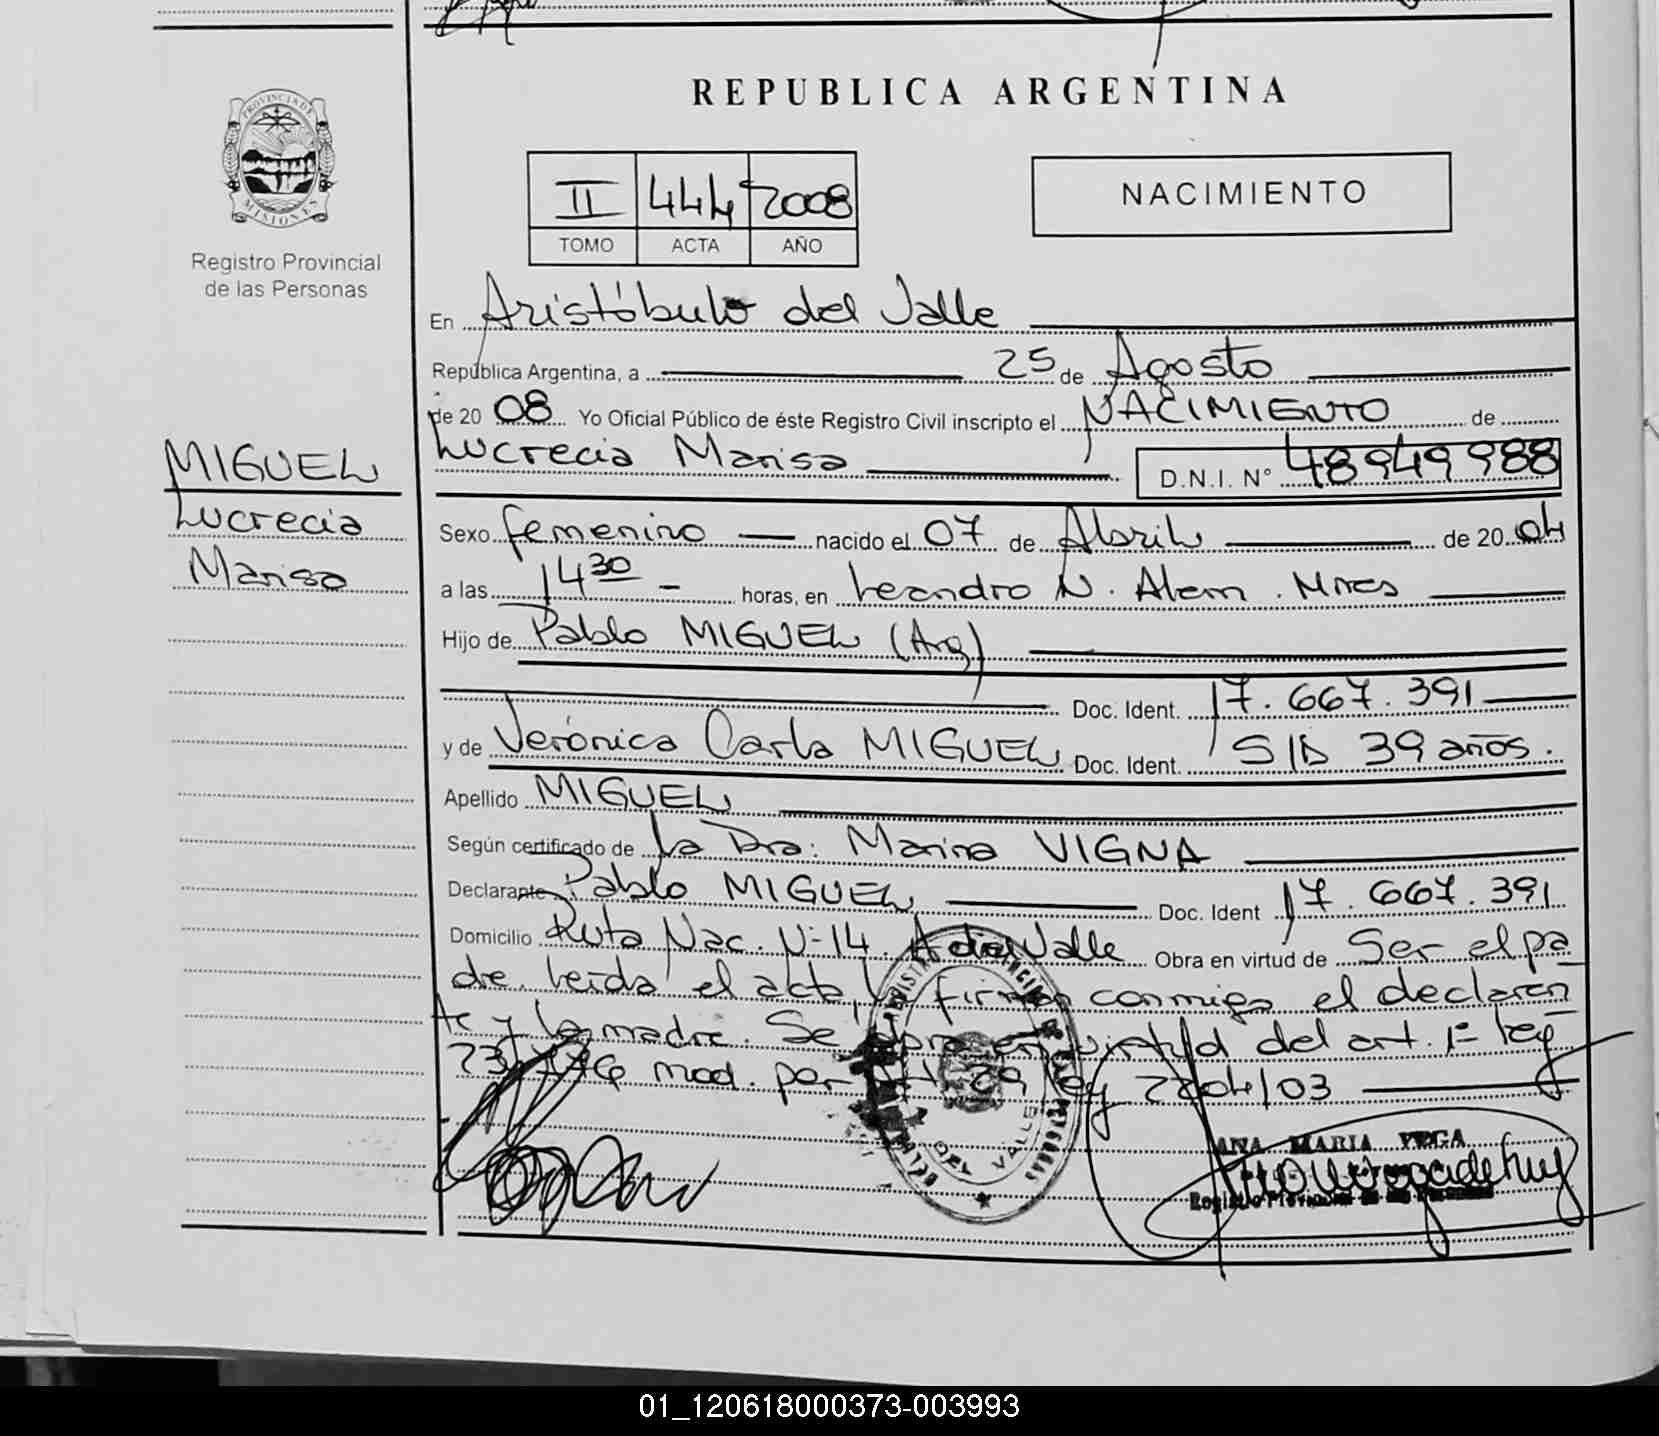 REPUBLICA ARGENTINA
PROVINCIA DE MISIONES
Registro Provincial
de las Personas
II 444 2008
TOMO ACTA AÑO
NACIMIENTO
En Aristóbulo del Valle
República Argentina, a 25 de Agosto
de 20 08 Yo Oficial Público de éste Registro Civil inscripto el NACIMIENTO de
Lucrecia Marisa D.N.I. N° 48949988
MIGUEL
Lucrecia
Marisa
Sexo femenino nacido el 07 de Abril de 20 04
a las 14 30 horas, en Leandro N. Alem. Mnes
Hijo de Pablo MIGUEL (Arg)
Doc. Ident. 17.667.391
y de Verónica Carla MIGUEL Doc. Ident. S/D 39 años.
Apellido MIGUEL
Según certificado de La Dra: Marina VIGNA
Declarante Pablo MIGUEL Doc. Ident 17.667.391
Domicilio Ruta Nac. N=14. A del Valle Obra en virtud de Ser el pa
dre. Leída el acta, firman conmigo el declaran
te y la madre. Se en virtud del art. 1= ley
mod. por 29 ley 2204/03
DEL VALLE
ANA MARIA VEGA
Registro Provincial de las Personas
01_120618000373-003993